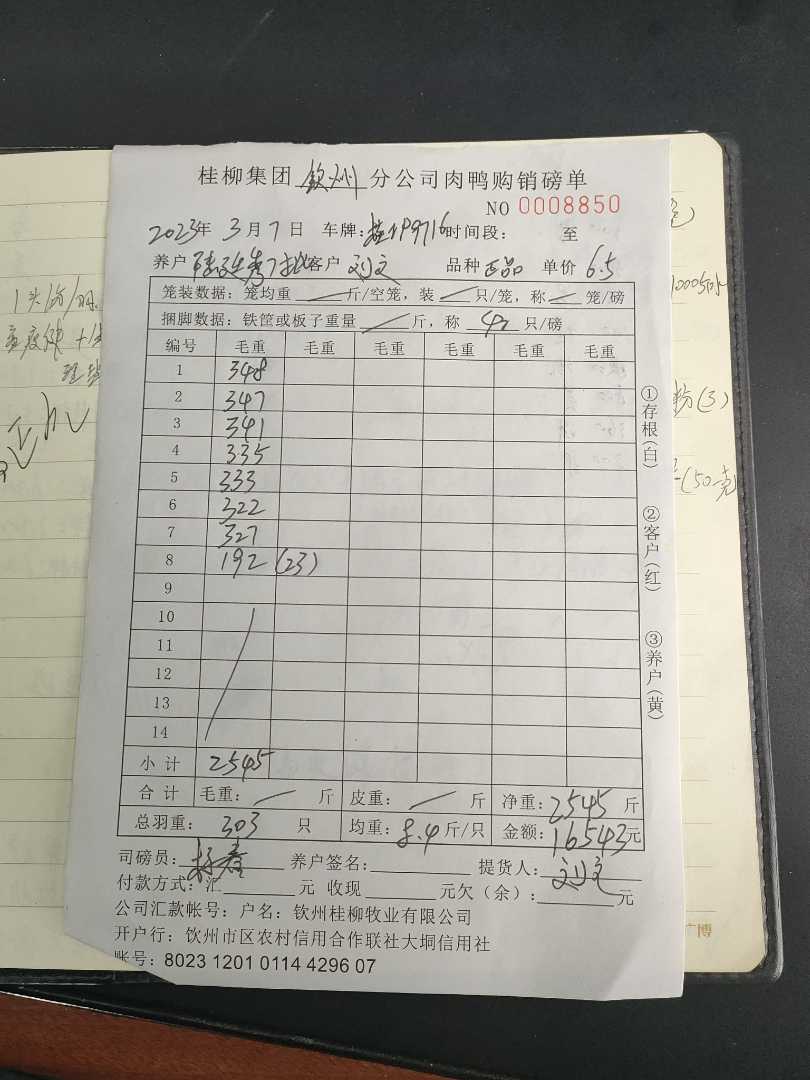 桂柳集团 钦州 分公司肉鸭购销磅单
NO 0008850
2023年 3月 7日 车牌: 桂 P9716 时间段: 至
养户 客户 刘文 品种 正品 单价 6.5
笼装数据: 笼均重 斤/空笼, 装 只/笼, 称 笼/磅
捆脚数据: 铁筐或板子重量 斤, 称 40 只/磅
编号 毛重 毛重 毛重 毛重 毛重 毛重
1 348
2 347
3 341
4 335
5 333
6 322
7 327
8 192 (23)
9
10
11
12
13
14
小计 2545
合计 毛重: 斤 皮重: 斤 净重: 2545 斤
总羽重: 303 只 均重: 8.4 斤/只 金额: 16543元
司磅员: 养户签名: 提货人: 刘文
付款方式: 汇 元 收现 元欠(余): 元
公司汇款帐号: 户名: 钦州桂柳牧业有限公司
开户行: 钦州市区农村信用合作联社大垌信用社
账号: 8023 1201 0114 4296 07
①存根(白)
②客户(红)
③养户(黄)
(50克)
广博